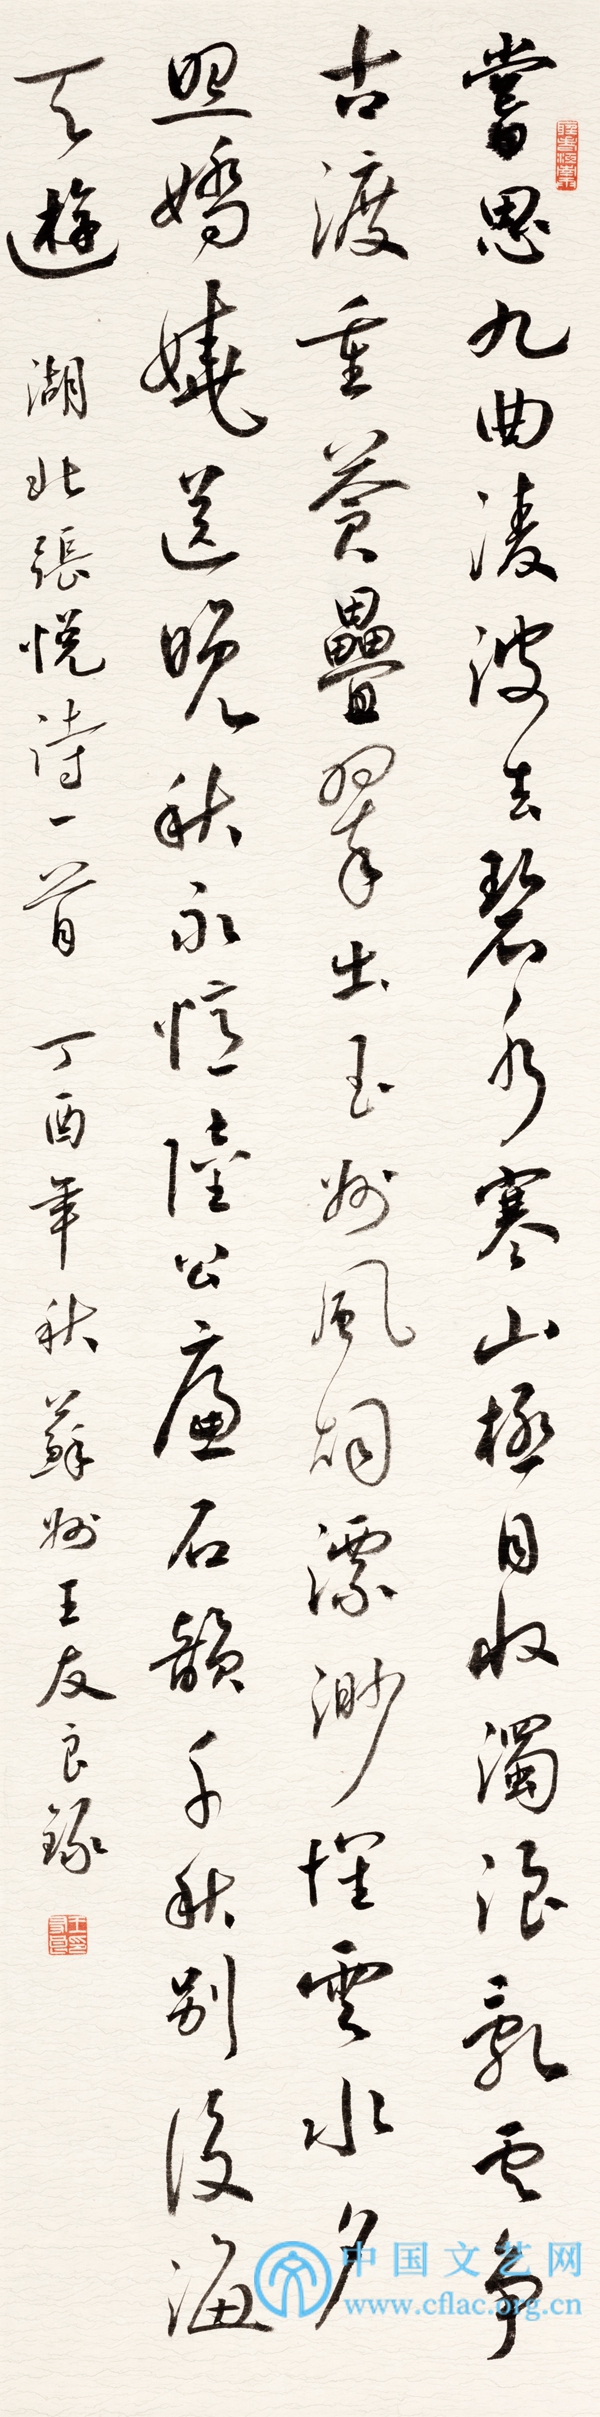 嘗思九曲凌波去碧水寒山極目收濁浪亂雲争
古渡重蒼疊翠出玉州風烟漂渺惟雲水夕
照嬌嬈送晚秋永憶陸公廉石韻千秋別後海
天遊 湖北張悦詩一首 丁酉年秋蘇州王友良録
中国文艺网
www.cflac.org.cn